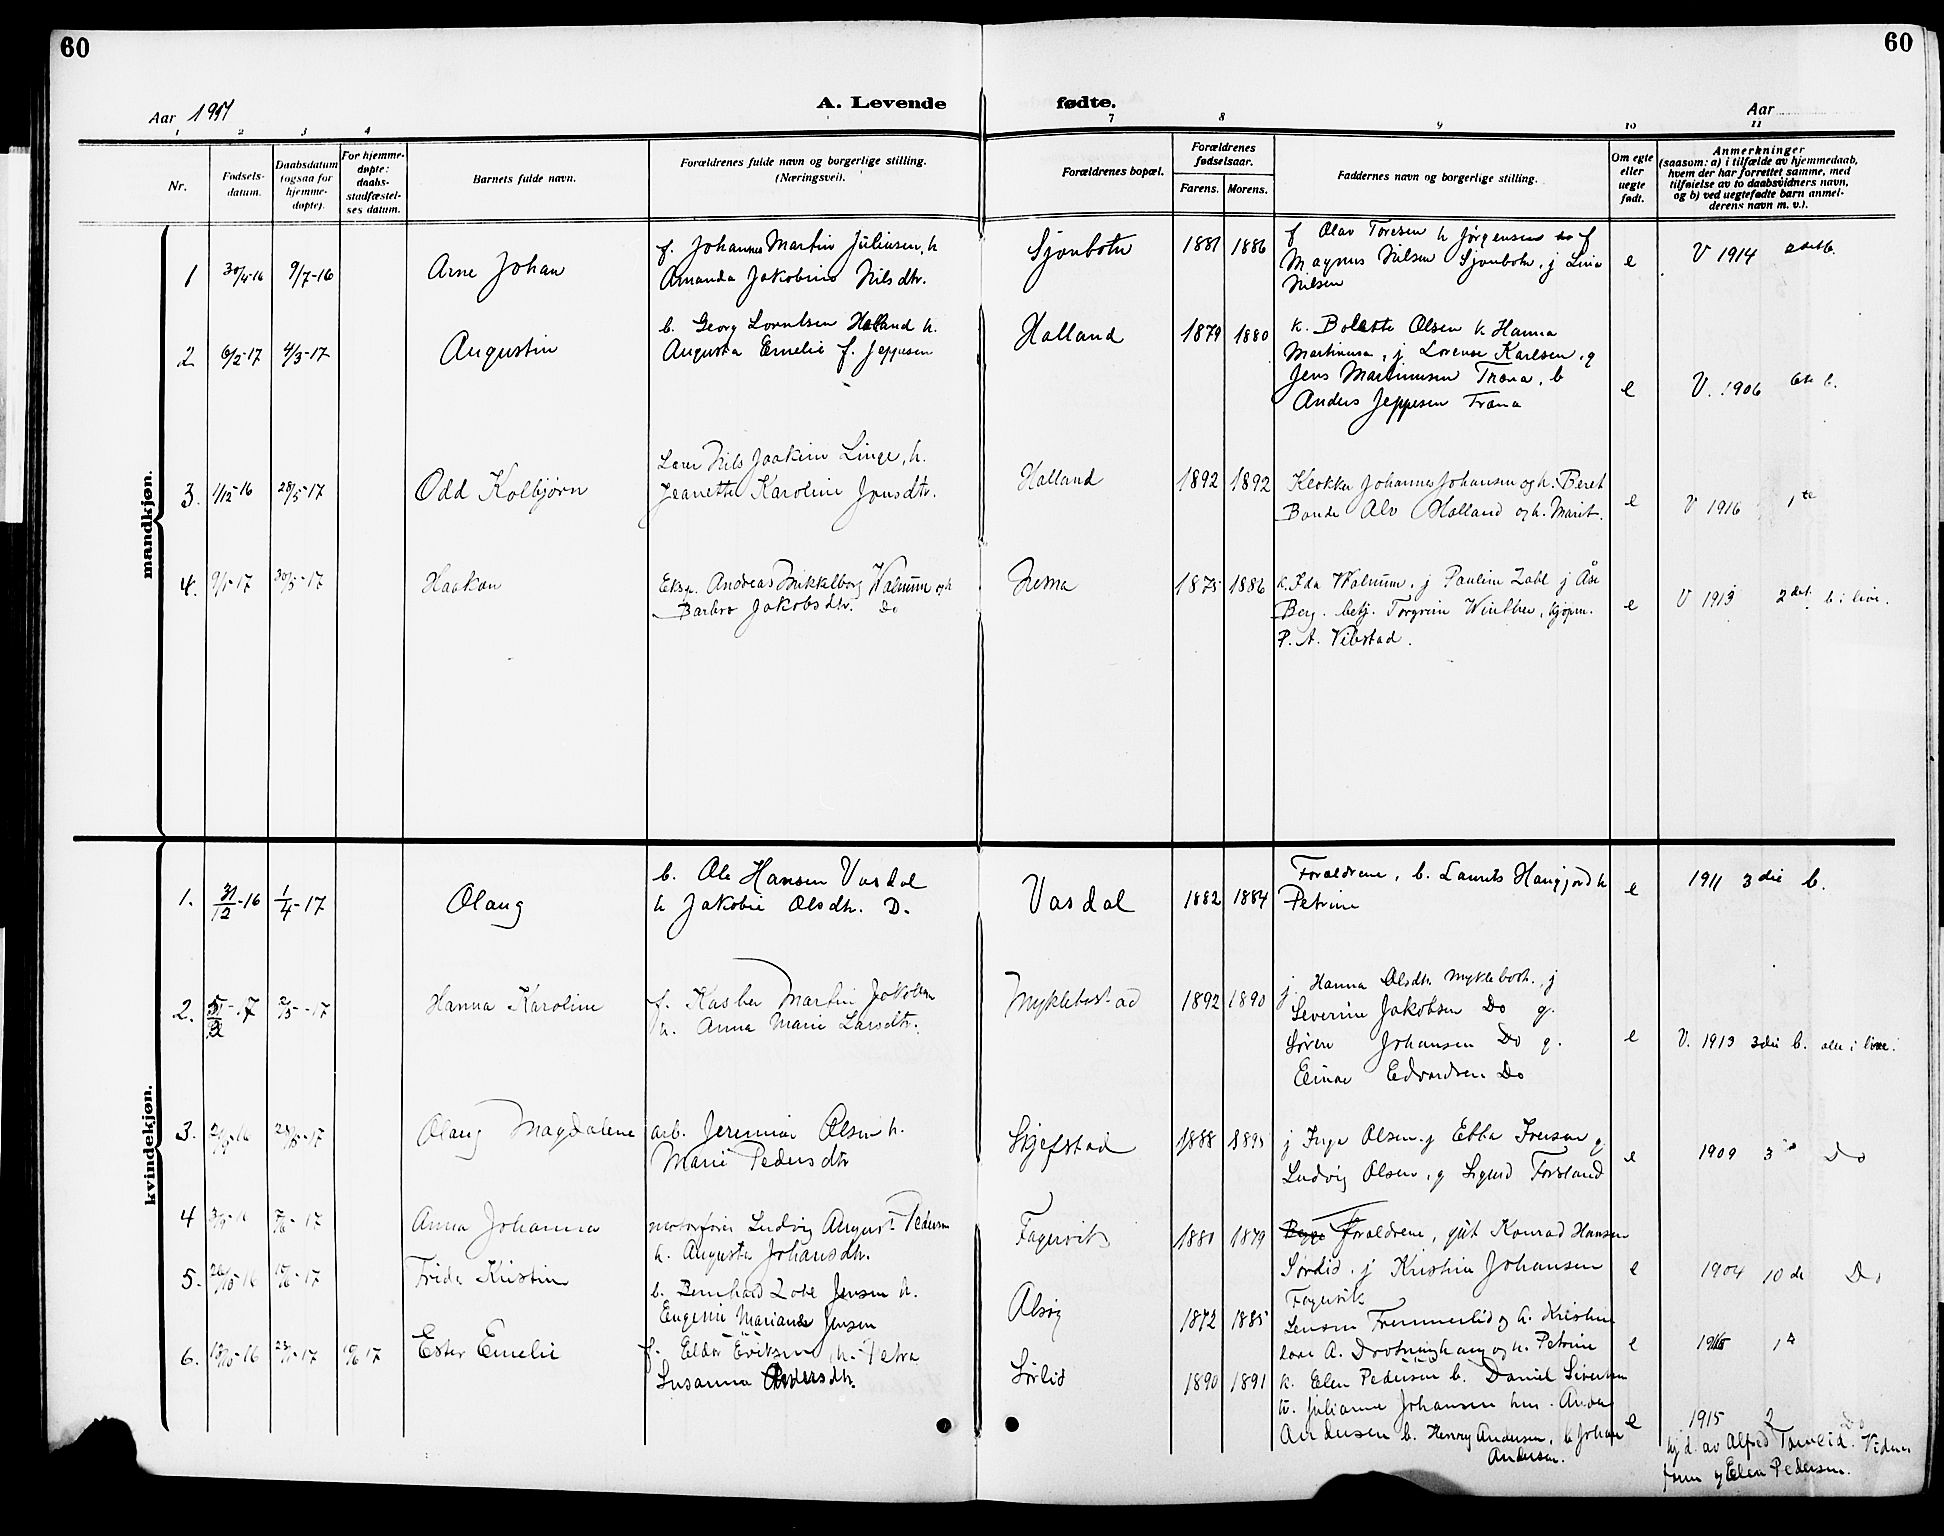 60
60
Aar 1917
A. Levende
fødte.
Aar
1 2 3 4 7 8 9 10 11
Nr.
Fødsels-
datum.
Daabsdatum
(ogsaa for
hjemme-
døpte).
For hjemme-
døpte:
daabs-
stadfæstel-
ses datum.
Barnets fulde navn.
Forældrenes fulde navn og borgerlige stilling.
(Næringsvei).
Forældrenes bopæl.
Forældrenes
fødselsaar.
Farens. Morens.
Faddernes navn og borgerlige stilling.
Om egte
eller
uegte
født.
Anmerkninger
(saasom: a) i tilfælde av hjemmedaab,
hvem der har forrettet samme, med
tilføielse av to daabsvidners navn,
og b) ved uegtefødte barn anmel-
derens navn m. v.).
mandkjøn.
1 30/4-16 9/7-16 Arne Johan
f. Johannes Martin Juliusen, h
Amanda Jakobine Nilsdtr.
Sjonbotn 1881 1886
f Olav Toresen h Jørgensen f
Magnus Nilsen Sjonbotn, j Lina
Nilsen
e V 1914
2 6/2-17 4/3-17 Augustin
b. Georg Lorentsen Holland h.
Augusta Emelie f. Jeppesen
Holland 1879 1880
k. Bolette Olsen k Hanna
Martinusen, j Lorense Karlsen, g
Jens Martinusen Træna, b
Anders Jeppesen Træna
e V. 1906 6te b.
3. 1/12-16 28/5-17 Odd Kolbjørn
Lærer Nils Joakim Linge, h.
Jeanette Karoline Jonsdtr.
Holland 1892 1892
Klokker Johannes Johansen og h. Beret
Bonde Alv Holland og h. Marit.
e V 1916 1te
4. 9/1-17 30/5-17 Haakon
Eksp. Andreas Mikkelborg Walnum og h
Barbro Jakobsdtr. Do
Nesna 1875 1886
k. Ida Walnum, j Pauline Zahl j Åse
Berg. betj. Torgrim Winther, kjøpm.
P. A. Vibstad.
e V 1913 2det b i live.
kvindekjøn.
1. 31/12-16 1/4-17 Olaug
b. Ole Hansen Vasdal
h Jakobie Olsdtr. D.
Vasdal 1882 1884
Forældrene, b. Laurits Haugjord h
Petrine
e 1911 3die b.
2. -17 -17 Hanna Karoline
f. Kasber Martin Jakobsen
h. Anna Marie Larsdtr.
Myklebostad 1892 1890
j. Hanna Olsdtr. Myklebost., j
Severine Jakobsen Do g.
Søren Johansen Do g.
Einar Edvardsen Do
e V. 1913 3die b. alle i live.
3. -16 -17 Olaug Magdalene
arb. Jeremias Olsen h.
Marie Pedersdtr
Skjefstad 1888 1895
j Inga Olsen, j Ebba Iversen g
Ludvig Olsen, g Sigurd Forsland
e 1909 3 Do
4 -17 Anna Johanna
motorfører Ludvig August Pedersen
h. Augusta Johansdtr.
Fagervik 1880 1879
Forældrene, gut Konrad Hansen
Sørlid. j Kristine Johansen
Fagervik
e 1904 10de Do
5. -16 -17 Frida Kristine
b. Bernhard Zobe Jensen h.
Eugenie Mariane Jensen
Alsøy 1872 1885
Lensm Fremmerlid og h. Kristine
lærer A. Drotninghaug og h. Petrine
e
6. -16 -17 17 Ester Emelie
f. Eldor Eriksen, h. Petra
Susanna Andersdtr.
Sørlid 1890 1891
k. Elen Pedersen b. Daniel Sivertsen
h. Julianne Johansen hus. Anders
Andersen b. Henry Andersen, b Johan
Andersen.
e 1915 2 Do
hj d. av Alfred Tomlid. Vidner
faren og Elen Pedersen.